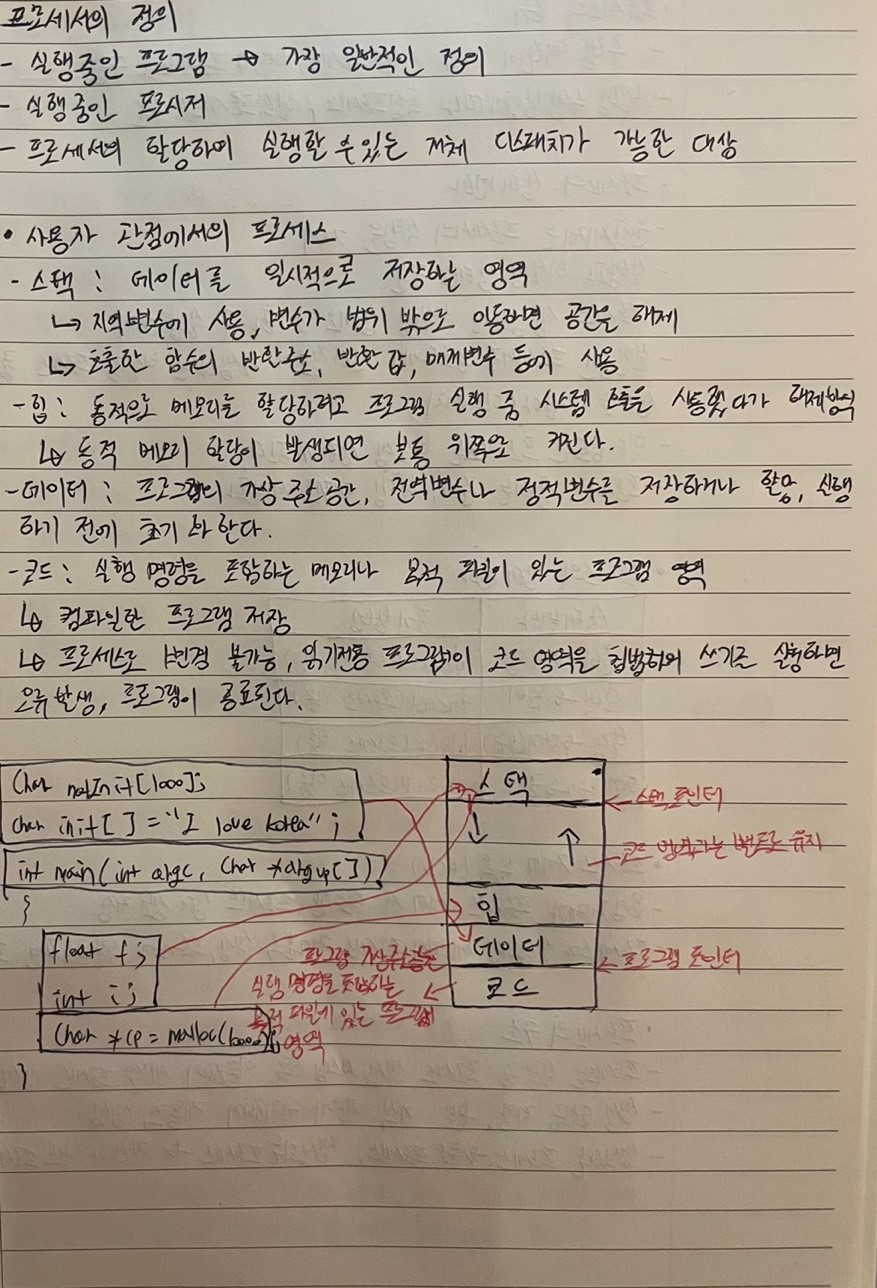 프로세서의 정의
- 실행중인 프로그램 → 가장 일반적인 정의
- 실행중인 프로시저
- 프로세서에 할당하여 실행할 수 있는 개체 디스패치가 가능한 대상
• 사용자 관점에서의 프로세스
- 스택 : 데이터를 일시적으로 저장하는 영역
↳ 지역변수에 사용, 변수가 범위 밖으로 이동하면 공간을 해제
↳ 호출한 함수의 반환주소, 반환값, 매개변수 등에 사용
- 힙 : 동적으로 메모리를 할당하려고 프로그램 실행 중 시스템 호출을 사용했다가 해제방식
↳ 동적 메모리 할당이 발생되면 보통 위쪽으로 커진다.
- 데이터 : 프로그램의 가상 주소 공간, 전역변수나 정적변수를 저장하거나 할당, 실행
하기 전에 초기화한다.
- 코드 : 실행 명령을 포함하는 메모리나 목적 파일에 있는 프로그램 영역
↳ 컴파일한 프로그램 저장
↳ 프로세스로 변경 불가능, 읽기전용 프로그램이 코드 영역을 쓰기로 실행하면
오류발생, 프로그램이 종료된다.
char notInit[1000];
char init[ ] = "I love korea";
int main(int argc, char *argv[])
{
float f;
int i;
char *cp = malloc(1000);
}
스택
↓ ↑
힙
데이터
코드
← 스택 포인터
코드 유지
← 프로그램 포인터
프로그램 가상주소공간
실행 명령을 포함하는
목적 파일에 있는 프로그램
영역